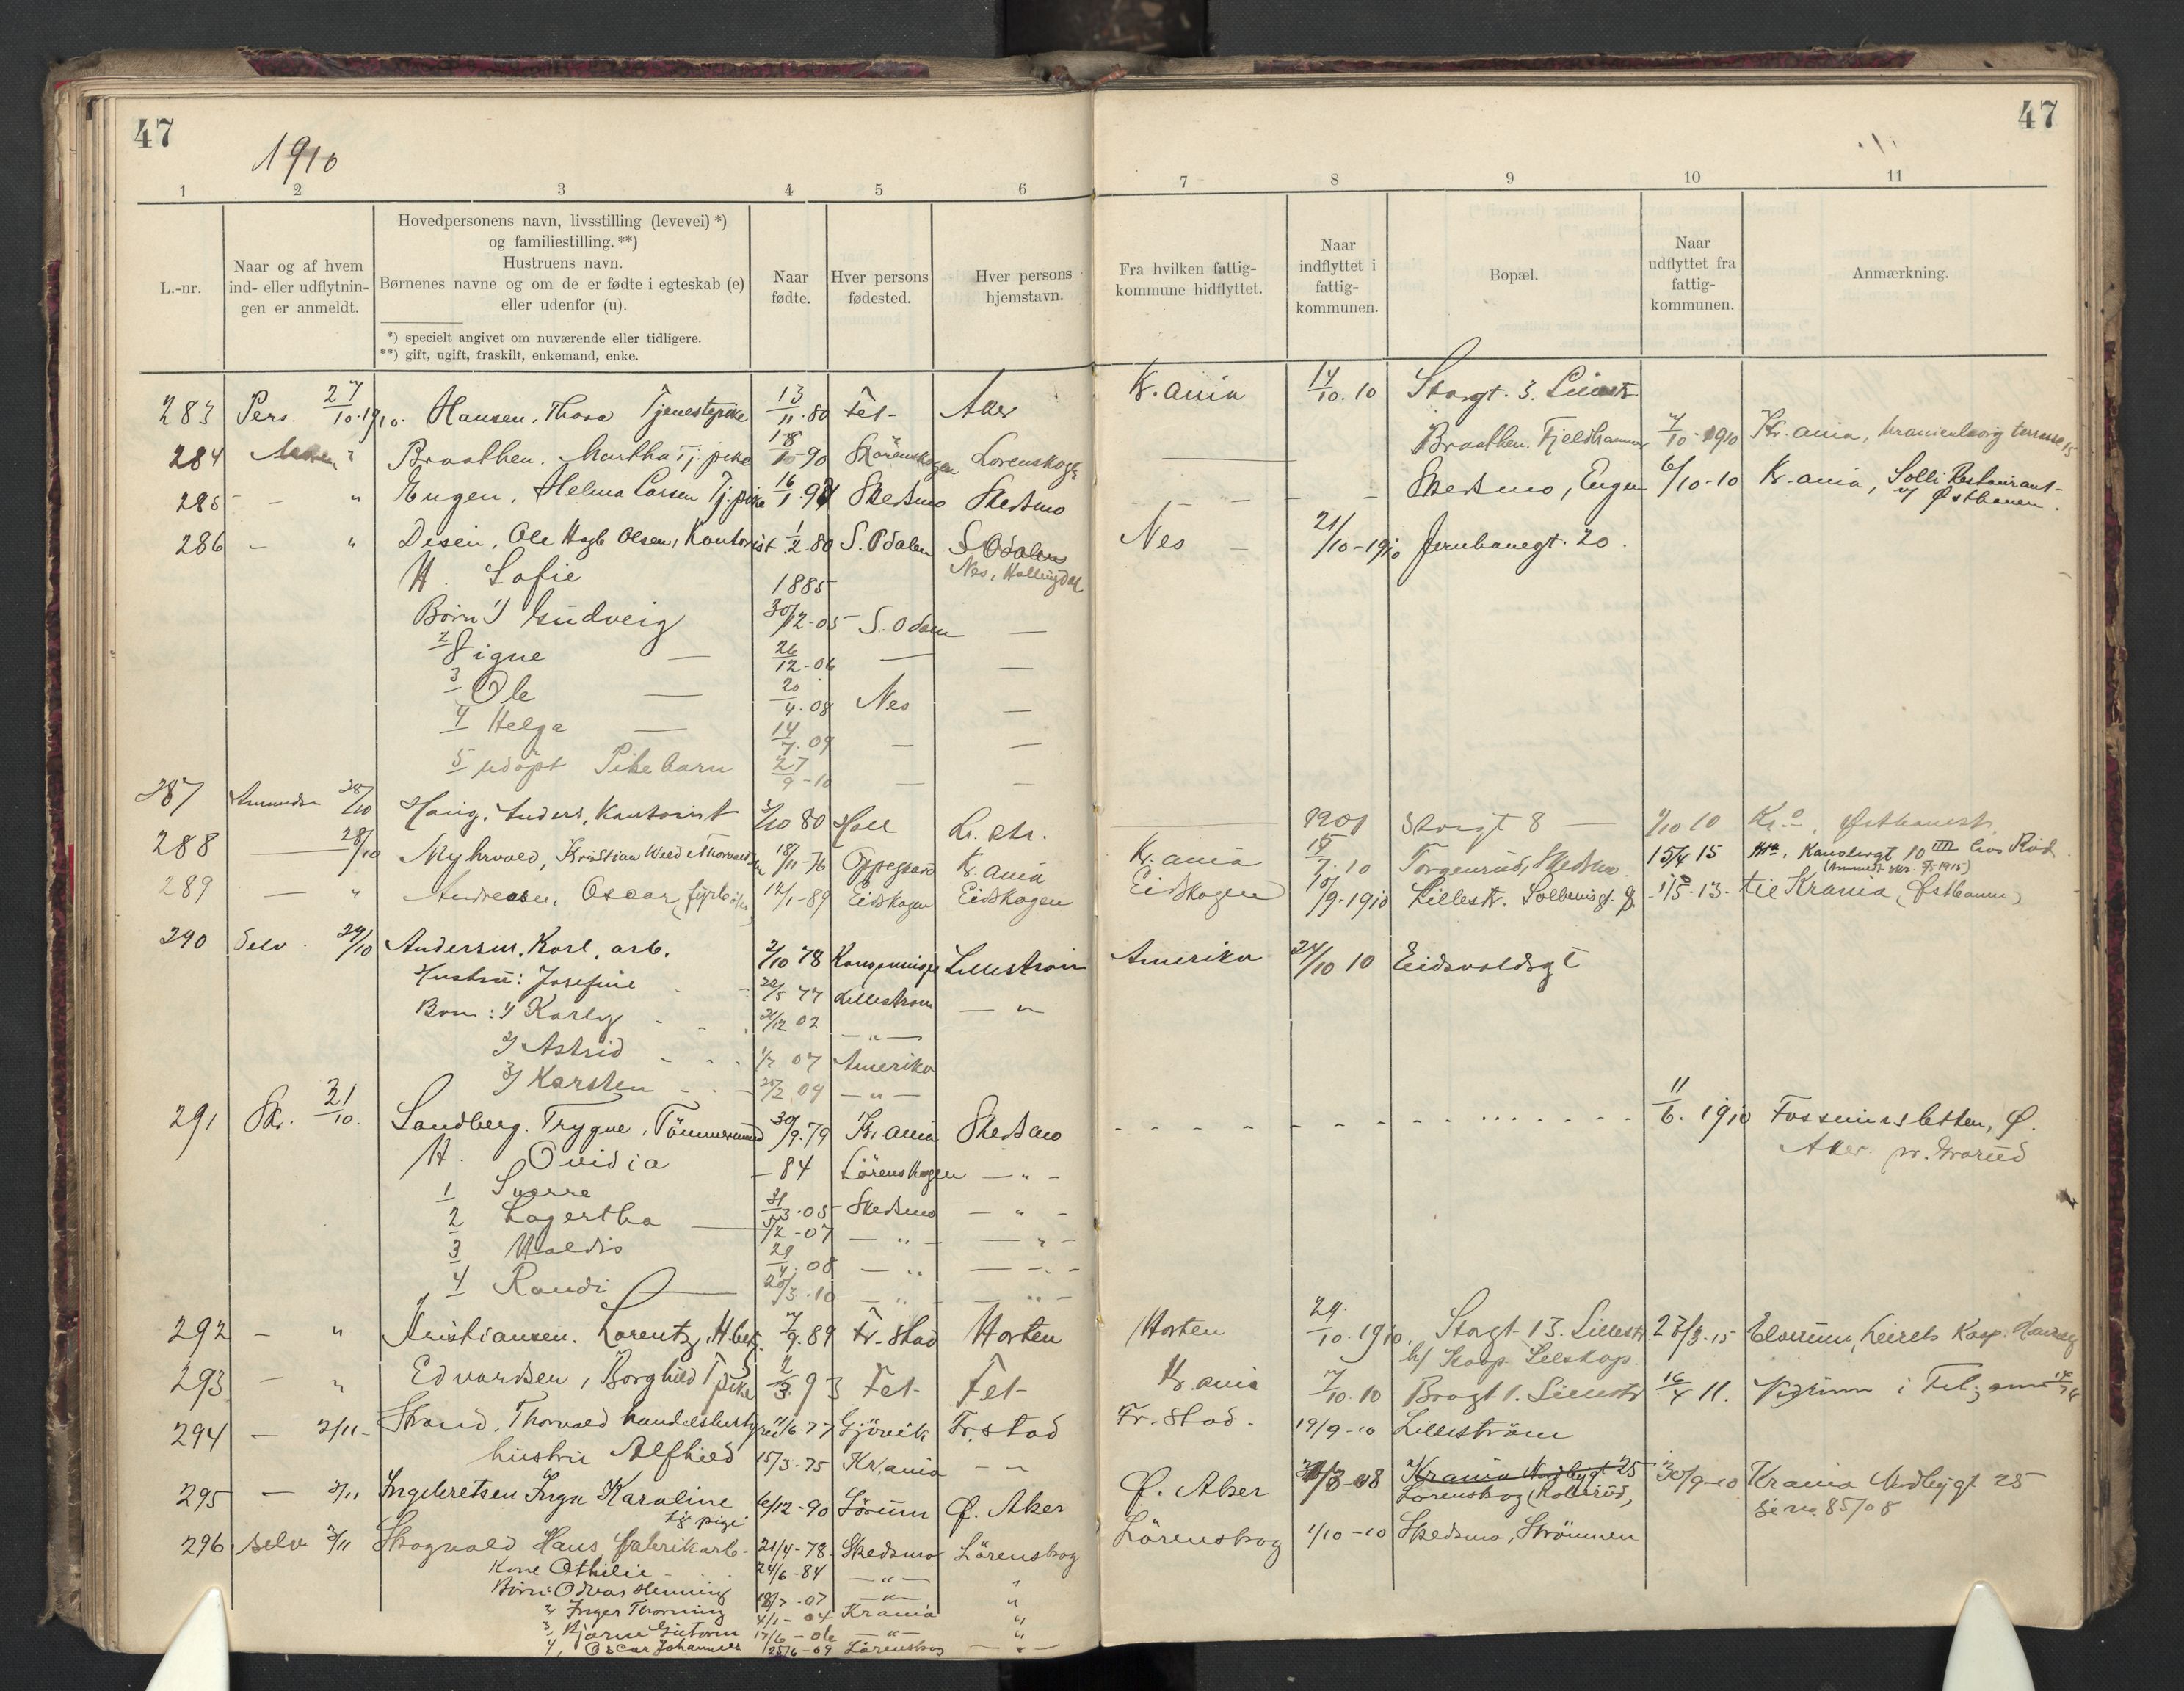 47
47
1910
1
2
3
4
5
6
7
8
9
10
11
L.-nr.
Naar og af hvem
ind- eller udflytnin-
gen er anmeldt.
Hovedpersonens navn, livsstilling (levevei) *)
og familiestilling. **)
Hustruens navn.
Børnenes navne og om de er fødte i egteskab (e)
eller udenfor (u).
*) specielt angivet om nuværende eller tidligere.
**) gift, ugift, fraskilt, enkemand, enke.
Naar
fødte.
Hver persons
fødested.
Hver persons
hjemstavn.
Fra hvilken fattig-
kommune hidflyttet.
Naar
indflyttet i
fattig-
kommunen.
Bopæl.
Naar
udflyttet fra
fattig-
kommunen.
Anmærkning.
283 Pers. 27/10-1910. Hansen, Thora Tjenestepike 13/11-80 Fet- Aker Kr.ania 14/10.10 Storgt. 3. Lillestr.
284 " Braathen. Martha Tj. pike 90 Skårer Lørenskog Braathen. Fjeldhammer 7/10-1910 Kr.ania, Uranienborg terrasse 15
285 - " Engen, Helma Larsen Tj. pike 16/1.91 Skedsmo Skedsmo - - - Skedsmo, Engen 6/10-10 Kr.ania, Solli Restaurant-
v/ Østbanen.
286 - " Disen, Ole Hagb Olsen, Kontorist 1/2.80 S. Odalen S Odalen Nes - 21/10-1910 Jernbanegt. 20.
Nes, Hallingdal
H. Sofie 1885
Børn 1) Gudveig 30/12-05 S. Odalen —
2 Signe — 26/12-06 — —
3 Ole — 20/4.08 Nes —
4 Helga — 14/7.09 — —
5 udöpt Pikebarn 27/9-10 — —
287 Amundsen 28/10 Haug, Anders, Kontorist 80 Hoel L. str. — 1901 Storgt 8 — 10 Kr.a, Østbanestr.
288 — 28/10 Myhrvold, Kristian 18/11-76 Oppegaard Kr.ania Kr.ania 15/7.10 Torgersrud, Skedsmo. 15/4 15 Kra, 10 III hos Röd
289 — " Andreasen, Oscar, fyrböter 12/1-89 Eidskogen Eidskogen Eidskogen 10/9-1910 Lillestr. Solheimsgt. 13- til Krania (Østbanen)
290 Selv. 29/10 Andersen, Karl, arb. 2/10 78 Kongsvinger Lillestrøm Amerika 24/10 10 Eidsvoldsgt
Hustru: Josefine - - 77 Lillestrøm — "
Børn: 1) Karly - - 02 — " —
2) Astrid - - - 07 Amerika
3) Karsten - - - 09 — " —
291 Sk. 31/10. Sandberg. Trygve, Tömmermand 30/9.79 Kr.ania Skedsmo - - - - - - 11/6. 1910 Fossumsletten, Ø.
Aker. pr. Grorud
H. Ovidia — 84 Lörenskogen — " -
1 Sverre 31/3.05 Skedsmo — " -
2 Lagertha — 5/2-07 — " - — " -
3 Valdis 29/4.08 — " — " -
4 Randi — 20/3.10 — " — " -
292 - " Kristiansen. Lorentz, H.bet. 7/9.89 Fr.stad Horten Horten 29./10.1910. Storgt 13. Lillestr. 27/3-15 Elverum, Leirets Koop. Handel
h/ Koop. Selskap.
293 - " Edvardsen, Borghild Tj. pike 2/3.93 Fet- Fet- Kr.ania 7/10.10 Brogt 1. Lillestr 16/4 11. i Fet;
294 - 2/11- Strand, Thorvald handelsbestyrer 11/6-77 Gjövik Fr.stad Fr.stad. 19/9-10 Lilleström
hustru Alfhild 15/3-75 Kr.ania — —
295 — 3/11 Ingebretsen Inga Karoline 6/12-90 Sörum Ø. Aker Ø. Aker 08 Krania Nordbygt 25 30/9-10 Krania Nordbygt 25
tj. pige. Lörenskog (Robsrud, Se no. 85/08
296. selv 3/11 Skogvold Hans fabrikarb. 21/4-78. Skedsmo Lörenskog Lörenskog 1/10-10 Skedsmo, Strömmen
Kone Othilie - 24/6-84 — " — "
Börn: Odvar Henning 18/7-07 — " — "
2, Inger Thorning 4/1-04 Krania "
3, Bjarne Gutorm 17/6-06 — " — "
4, Oscar Johannes 25/6-09 Lörenskog — " —